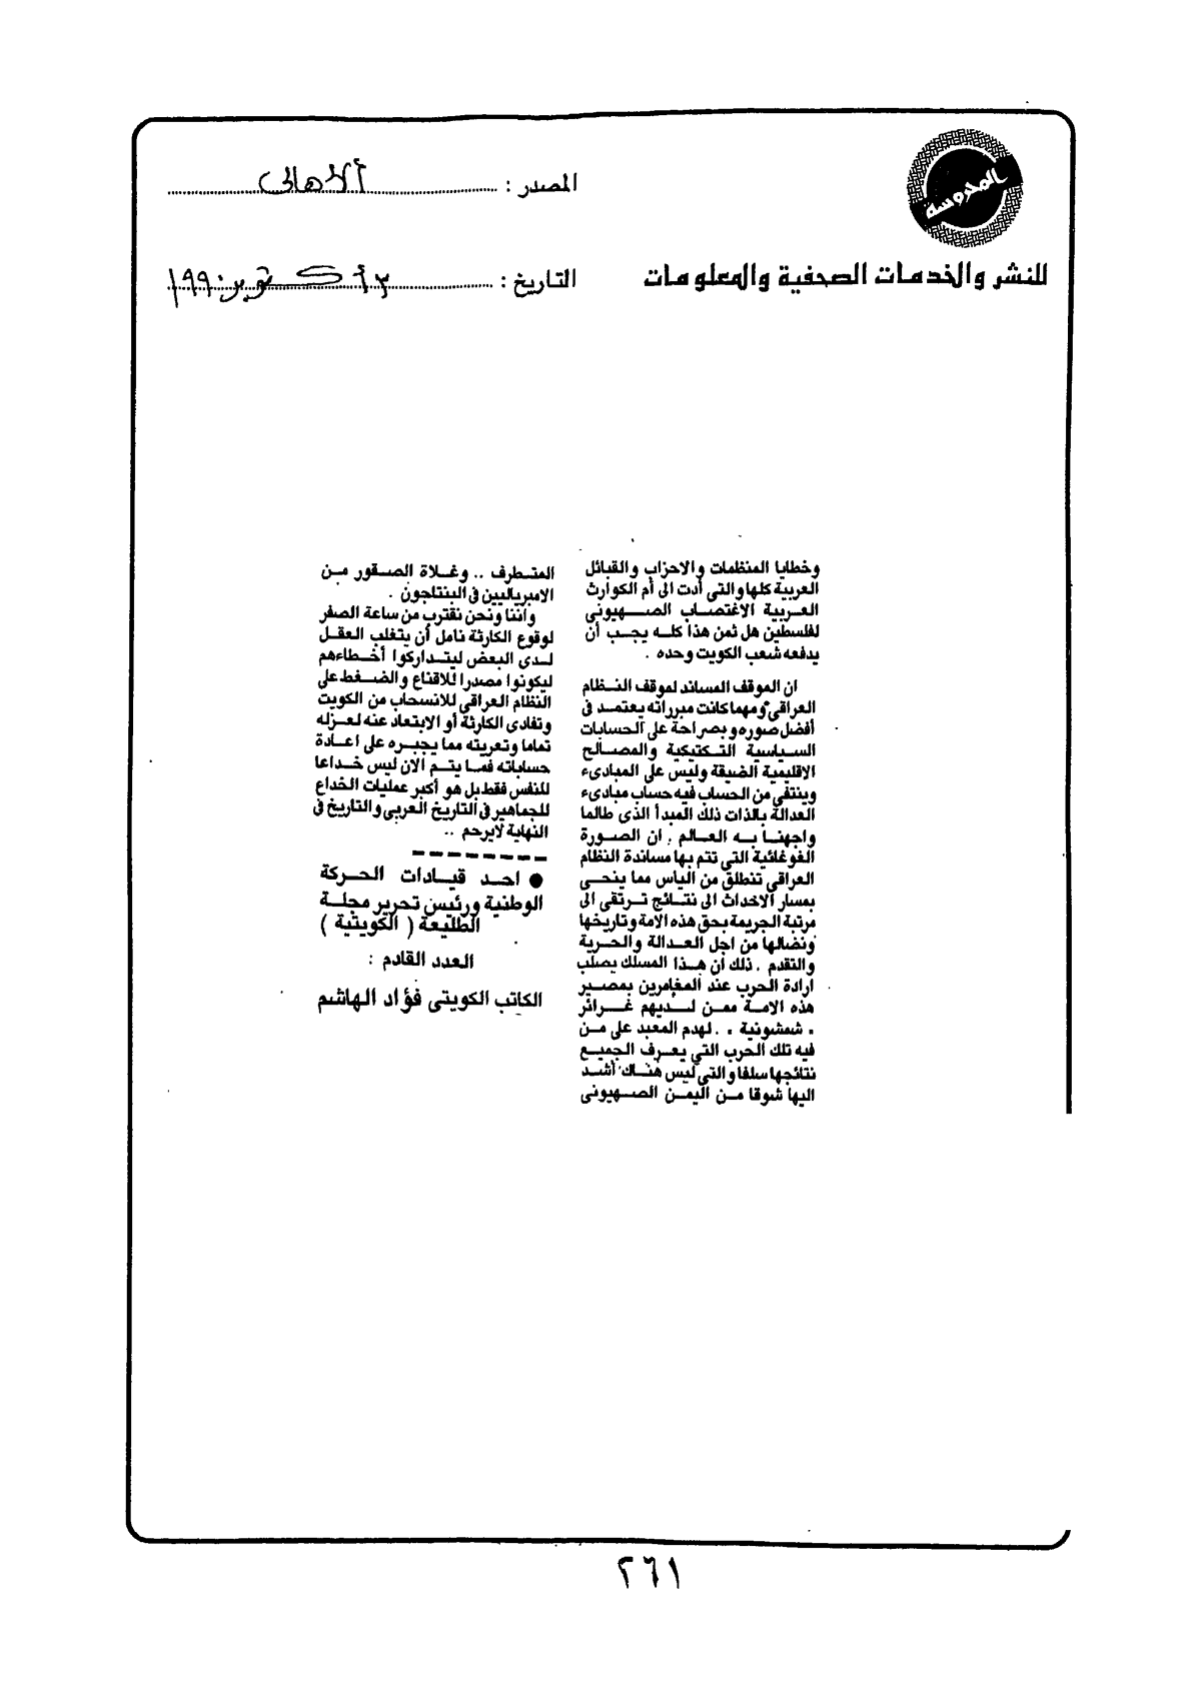 المحروسة
للنشر والخدمات الصحفية والمعلومات
المصدر : الأهالى
التاريخ : ٣ أكتوبر ١٩٩٠
وخطايا المنظمات والاحزاب والقبائل
العربية كلها والتى أدت الى أم الكوارث
العربية الاغتصاب الصهيونى
لفلسطين هل ثمن هذا كله يجب أن
يدفعه شعب الكويت وحده .
ان الموقف المساند لموقف النظام
العراقى ومهما كانت مبرراته يعتمد فى
أفضل صوره وبصراحة على الحسابات
السياسية التكتيكية والمصالح
الاقليمية الضيقة وليس على المبادىء
وينتفى من الحساب فيه حساب مبادىء
العدالة بالذات ذلك المبدأ الذى طالما
واجهنا به العالم . ان الصورة
الغوغائية التى تتم بها مساندة النظام
العراقى تنطلق من الياس مما ينحى
بمسار الاحداث الى نتائج ترتقى الى
مرتبة الجريمة بحق هذه الامة وتاريخها
ونضالها من اجل العدالة والحرية
والتقدم . ذلك أن هذا المسلك يصلب
ارادة الحرب عند المغامرين بمصير
هذه الامة ممن لديهم غرائز
« شمشونية » . لهدم المعبد على من
فيه تلك الحرب التى يعرف الجميع
نتائجها سلفا والتى ليس هناك أشد
اليها شوقا من اليمن الصهيونى
المتطرف .. وغلاة الصقور من
الامبرياليين فى البنتاجون .
وأننا ونحن نقترب من ساعة الصفر
لوقوع الكارثة نامل أن يتغلب العقل
لدى البعض ليتداركوا أخطاءهم
ليكونوا مصدرا للاقناع والضغط على
النظام العراقى للانسحاب من الكويت
وتفادى الكارثة أو الابتعاد عنه لعزله
تماما وتعريته مما يجبره على اعادة
حساباته فما يتم الان ليس خداعا
للنفس فقط بل هو أكبر عمليات الخداع
للجماهير فى التاريخ العربى والتاريخ فى
النهاية لايرحم ..
● احد قيادات الحركة
الوطنية ورئيس تحرير مجلة
الطليعة ( الكويتية )
العدد القادم :
الكاتب الكويتى فؤاد الهاشم
٢٦١